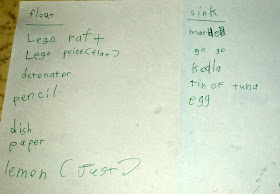 float
Lego raft
Lego peice (flat)
detonator
pencil
dish
paper
lemon (Just)
sink
go go
koala
tin of tuna
egg